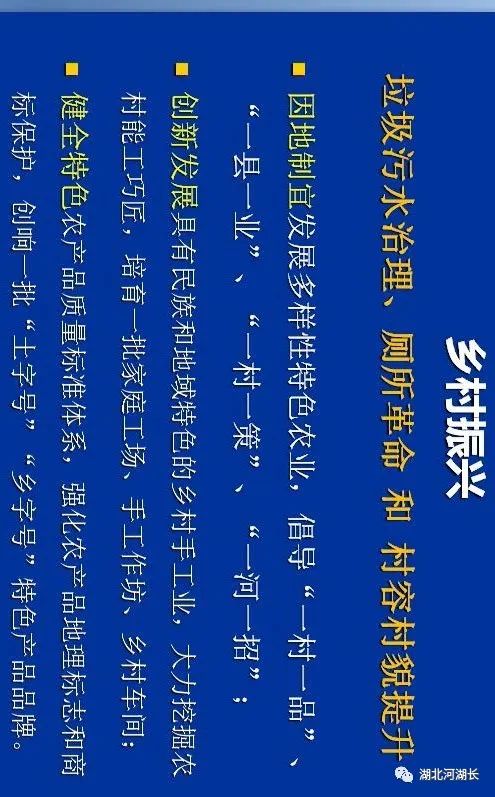 乡村振兴
垃圾污水治理、厕所革命 和 村容村貌提升
因地制宜发展多样性特色农业，倡导“一村一品”、
“一县一业”、“一村一策”、“一河一招”；
创新发展具有民族和地域特色的乡村手工业，大力挖掘农
村能工巧匠，培育一批家庭工场、手工作坊、乡村车间；
健全特色农产品质量标准体系，强化农产品地理标志和商
标保护，创响一批“土字号”“乡字号”特色产品品牌。
湖北河湖长